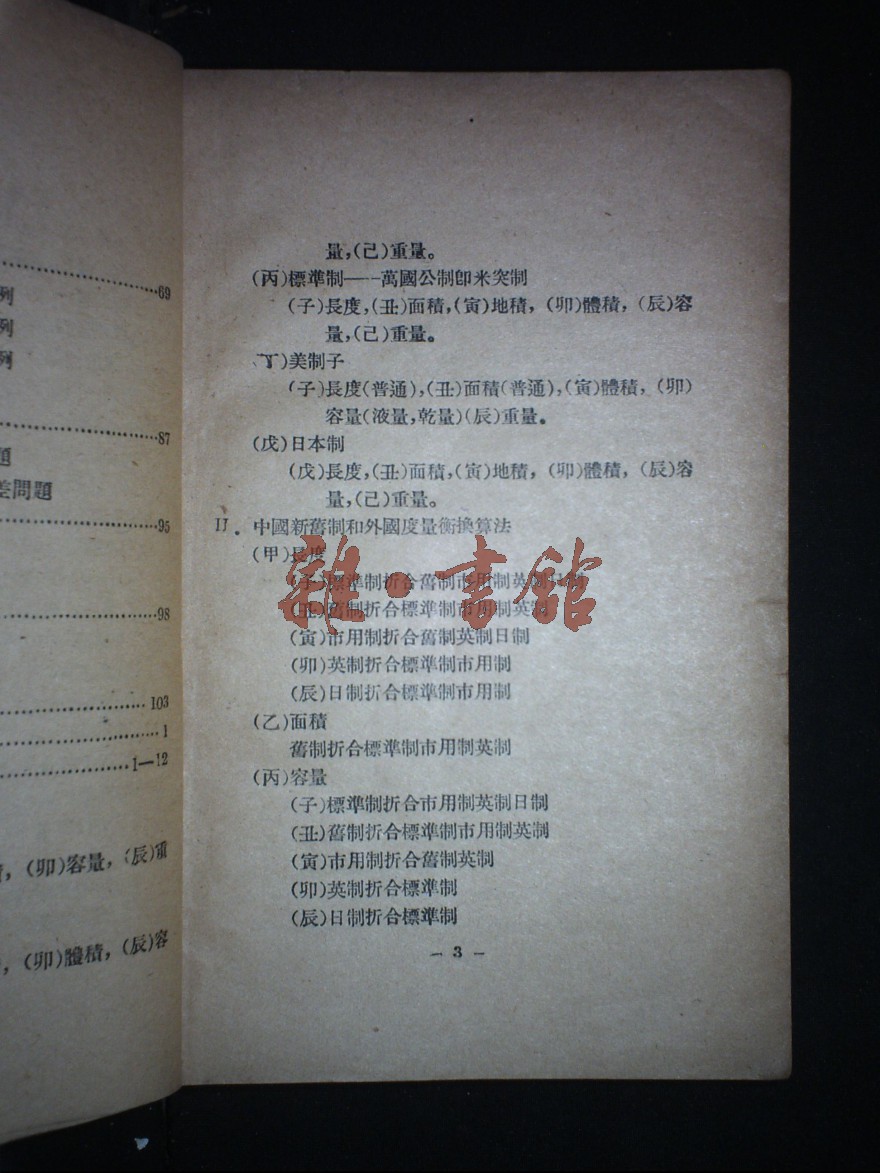 69
列
列
列
87
題
差問題
95
98
103
1
1—12
，(卯)容量，(辰)重
，(卯)體積，(辰)容
量,(已)重量。
(丙)標準制——萬國公制卽米突制
(子)長度,(丑)面積,(寅)地積，(卯)體積，(辰)容
量,(已)重量。
(丁)美制子
(子)長度(普通),(丑)面積(普通),(寅)體積，(卯)
容量(液量,乾量)(辰)重量。
(戊)日本制
(戊)長度,(丑)面積,(寅)地積，(卯)體積，(辰)容
量,(已)重量。
II. 中國新舊制和外國度量衡換算法
(甲)長度
(子)標準制折合舊制市用制英制日制
(丑)舊制折合標準制市用制英制
(寅)市用制折合舊制英制日制
(卯)英制折合標準制市用制
(辰)日制折合標準制市用制
(乙)面積
舊制折合標準制市用制英制
(丙)容量
(子)標準制折合市用制英制日制
(丑)舊制折合標準制市用制英制
(寅)市用制折合舊制英制
(卯)英制折合標準制
(辰)日制折合標準制
— 3 —
雜·書館